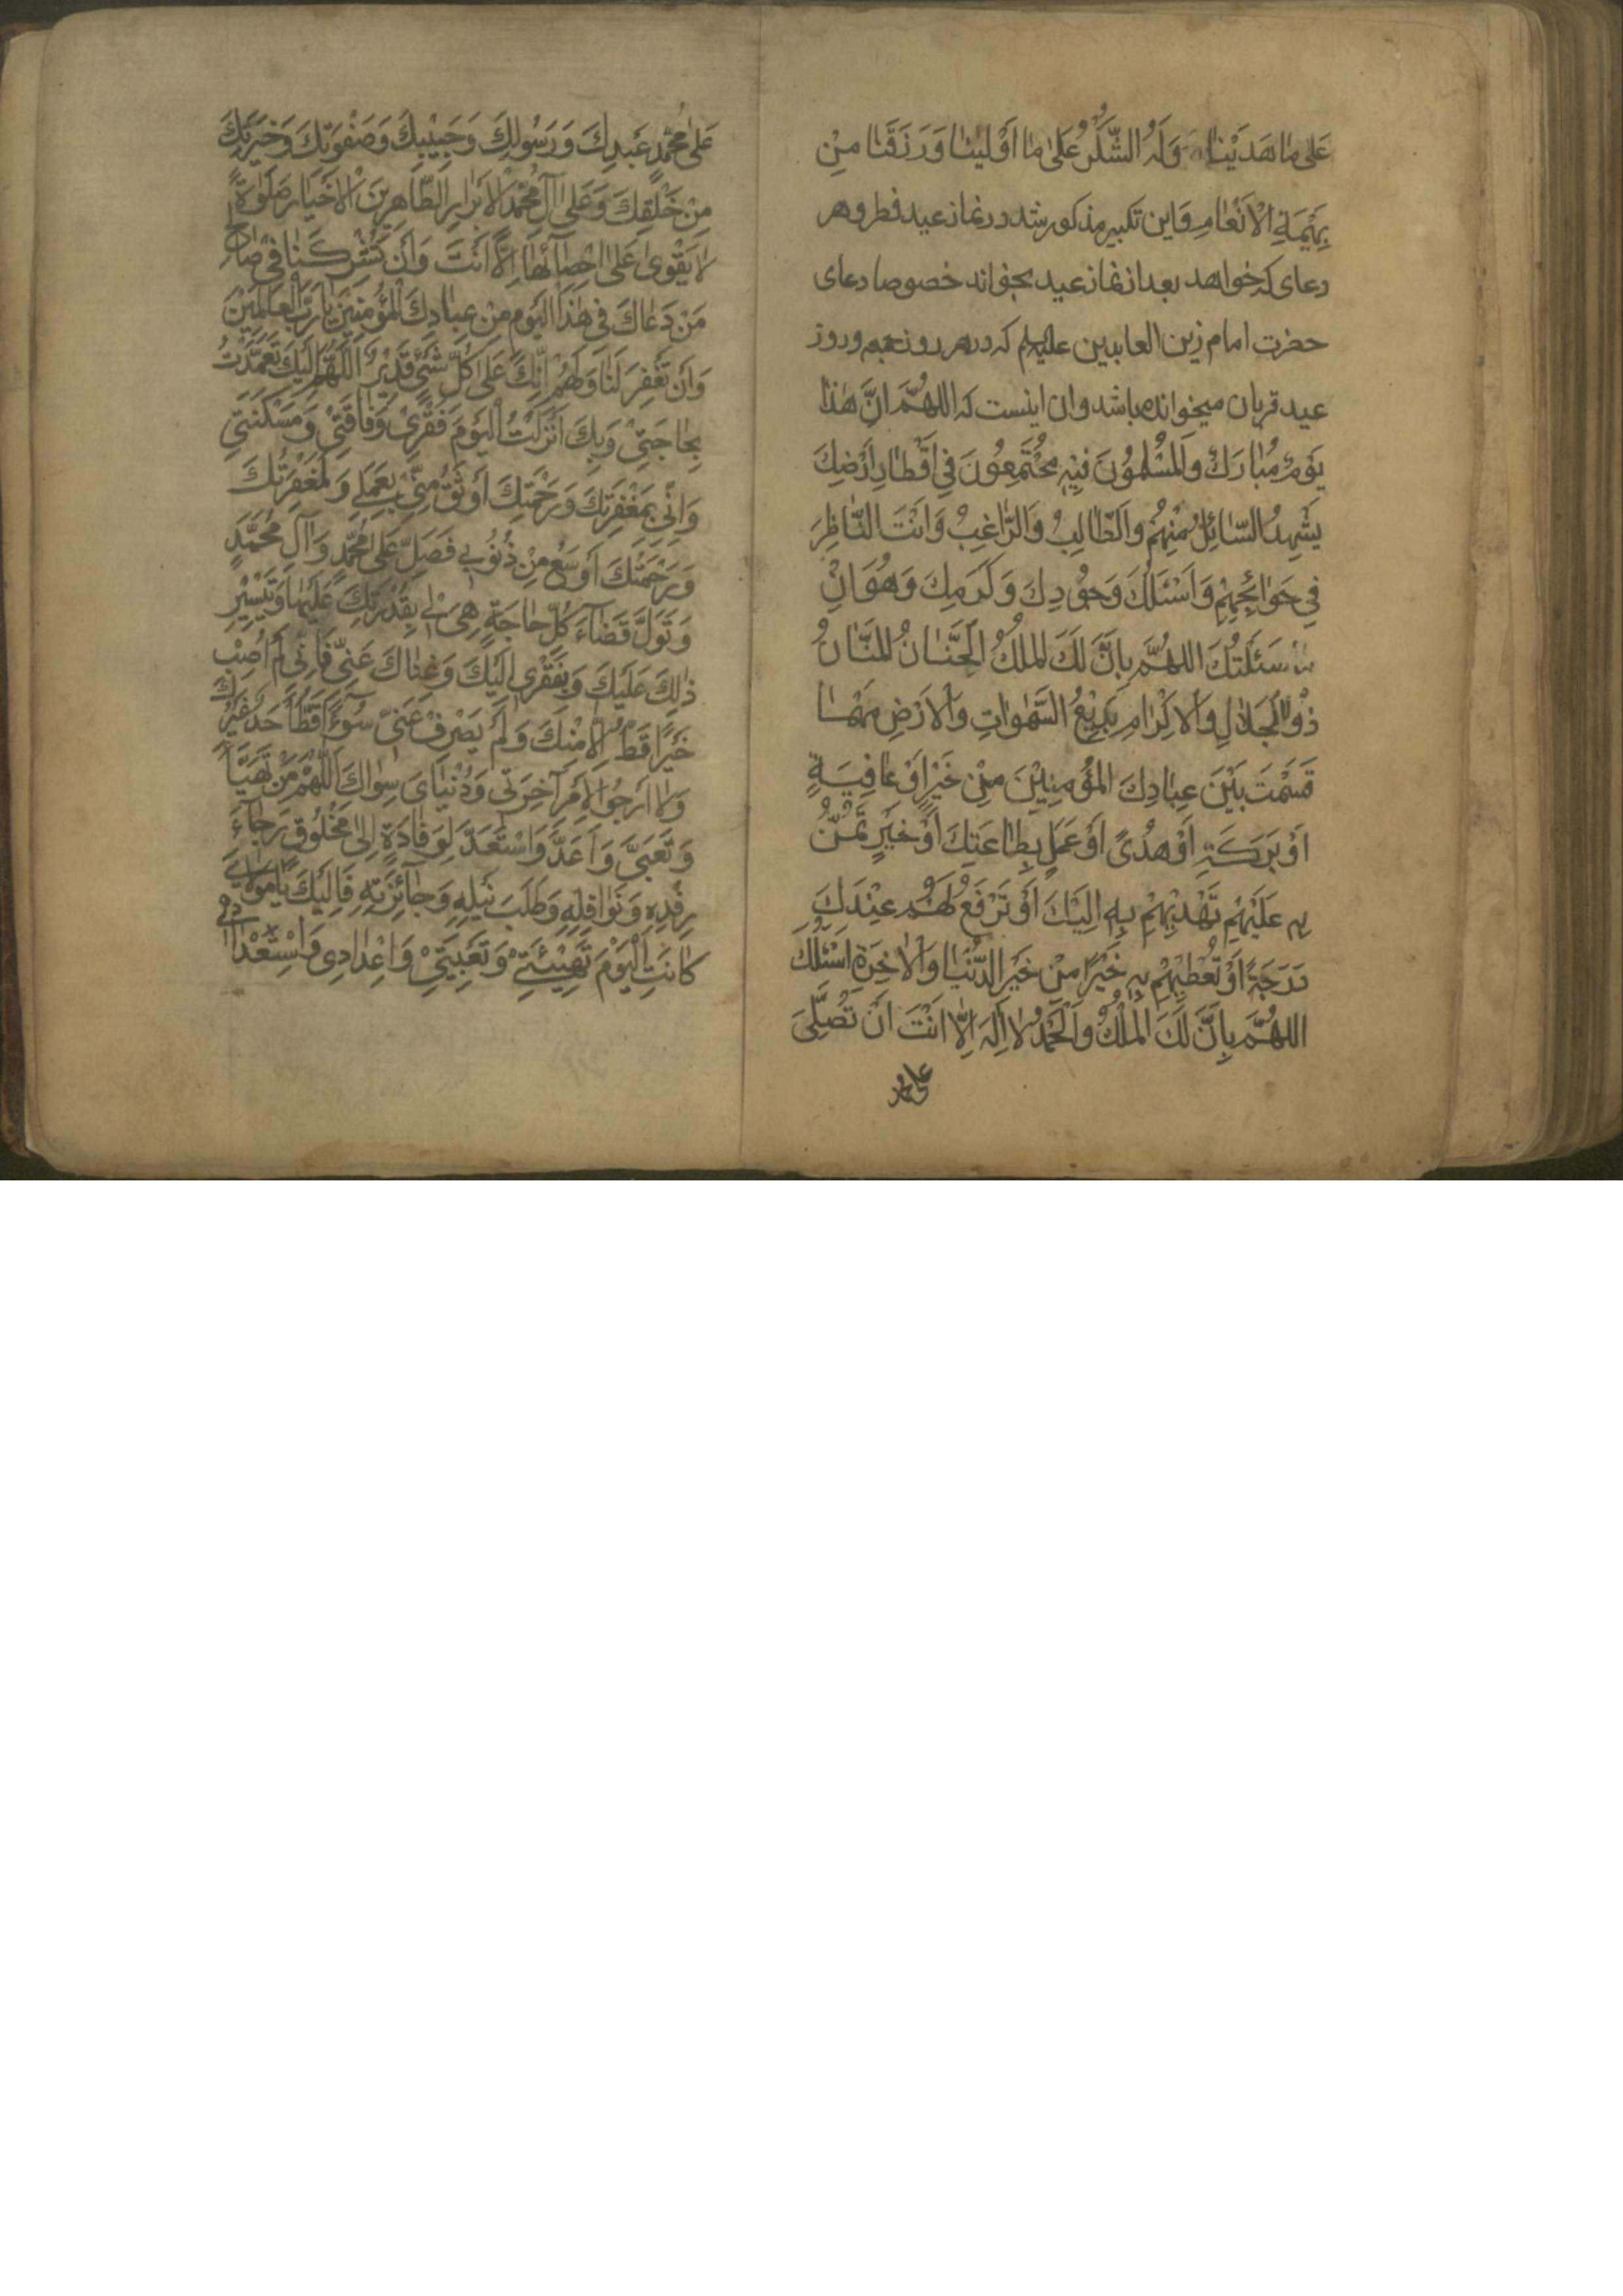 عَلىٰ مٰا هَدَيْنٰا وَلَهُ الشُّكْرُ عَلىٰ مٰا اَوْلَيْنٰا وَرَزَقَنٰا مِنْ
بَهِيْمَةِ الْاَنْعٰامِ وَاين تكبير مذكور شد در نماز عيد فطر و هر
دعاى كه خواهد بعد از نماز عيد بخواند خصوصا دعاى
حضرت امام زين العابدين عليه‌السلم كه در هر روز جمعه و روز
عيد قربان ميخوانده باشد و ان اينست كه اللهُمَّ اِنَّ هٰذا
يَوْمٌ مُبٰارَكٌ وَالْمُسْلِمُوْنَ فِيْهِ مُجْتَمِعُوْنَ فِي اَقْطٰارِ اَرْضِكَ
يَشْهِدُ السّٰائِلُ مِنْهُمْ وَالطّٰالِبُ وَالرّٰاغِبُ وَاَنْتَ النّٰاظِرُ
فِي حَوٰائِجِهِمْ وَاَسْئَلُكَ وَجُوْدِكَ وَكَرَمِكَ وَهَوَانِ
مٰا سَئَلْتُكَ اللهُمَّ بِاَنَّ لَكَ الْمُلْكُ الْحَنّٰانُ الْمَنّٰانُ
ذُوْالْجَلاٰلِ وَالْاِكْرٰامِ بَدِيْعُ السَّمٰوٰاتِ وَالْاَرْضِ مَهْمٰا
قَسَمْتَ بَيْنَ عِبٰادِكَ الْمُؤْمِنِيْنَ مِنْ خَيْرٍ اَوْ عٰافِيَةٍ
اَوْ بَرَكَةٍ اَوْ هُدًى اَوْ عَمَلٍ بِطٰاعَتِكَ اَوْ خَيْرٍ تَمُنُّ
بِهِ عَلَيْهِمْ تَهْدِيْهِمْ بِهِ اِلَيْكَ اَوْ تَرْفَعُ لَهُمْ عِنْدَكَ
دَرَجَةً اَوْ تُعْطِيْهِمْ بِهِ خَيْرًا مِنْ خَيْرِ الدُّنْيٰا وَالْاٰخِرَةِ اَسْئَلُكَ
اللهُمَّ بِاَنَّ لَكَ الْمُلْكُ وَالْحَمْدُ لاٰ اِلٰهَ اِلّٰا اَنْتَ اَنْ تُصَلِّىَ
على محمد
عَلىٰ مُحَمَّدٍ عَبْدِكَ وَرَسُوْلِكَ وَحَبِيْبِكَ وَصَفْوَتِكَ وَخِيَرَتِكَ
مِنْ خَلْقِكَ وَعَلىٰ آلِ مُحَمَّدٍ الْاَبْرٰارِ الطّٰاهِرِيْنَ الْاَخْيٰارِ صَلوٰةً
لاٰ يَقْوىٰ عَلىٰ اِحْصٰآئِهٰا اِلّٰا اَنْتَ وَاَنْ تُشْرِكَنٰا فِى صٰالِحِ
مَنْ دَعٰاكَ فِى هٰذَا الْيَوْمِ مِنْ عِبٰادِكَ الْمُؤْمِنِيْنَ يٰا رَبَّ الْعٰالَمِيْنَ
وَاَنْ تَغْفِرَ لَنٰا وَلَهُمْ اِنَّكَ عَلىٰ كُلِّ شَيْئٍ قَدِيْرٌ اَللّٰهُمَّ اِلَيْكَ تَعَمَّدْتُ
بِحٰاجَتِىْ وَبِكَ اَنْزَلْتُ الْيَوْمَ فَقْرِىْ وَفٰاقَتِىْ وَمَسْكَنَتِىْ
وَاِنِّى بِمَغْفِرَتِكَ وَرَحْمَتِكَ اَوْثَقُ مِنِّىْ بِعَمَلِى وَلَمَغْفِرَتُكَ
وَرَحْمَتُكَ اَوْسَعُ مِنْ ذُنُوْبِى فَصَلِّ عَلىٰ مُحَمَّدٍ وَآلِ مُحَمَّدٍ
وَتَوَلَّ قَضٰآءَ كُلِّ حٰاجَةٍ هِىَ لِى بِقُدْرَتِكَ عَلَيْهٰا وَتَيْسِيْرِ
ذٰلِكَ عَلَيْكَ وَبِفَقْرِى اِلَيْكَ وَغِنٰاكَ عَنِّى فَاِنِّى لَمْ اُصِبْ
خَيْرًا قَطُّ اِلّٰا مِنْكَ وَلَمْ يَصْرِفْ عَنِّى سُوْءً قَطُّ اَحَدٌ غَيْرُكَ
وَلاٰ اَرْجُوْ لِاَمْرِ آخِرَتِى وَدُنْيٰاىَ سِوٰاكَ اَللّٰهُمَّ مَنْ تَهَيَّأَ
وَتَعَبَّىَ وَاَعَدَّ وَاسْتَعَدَّ لِوَفٰادَةٍ اِلىٰ مَخْلُوْقٍ رَجٰآءَ
رِفْدِهِ وَنَوٰافِلِهِ وَطَلَبَ نَيْلِهِ وَجٰائِزَتِهِ فَاِلَيْكَ يٰا مَوْلاٰىَ
كٰانَتِ الْيَوْمَ تَهْيِئَتِىْ وَتَعْبِيَتِىْ وَاِعْدٰادِى وَاسْتِعْدٰادِى